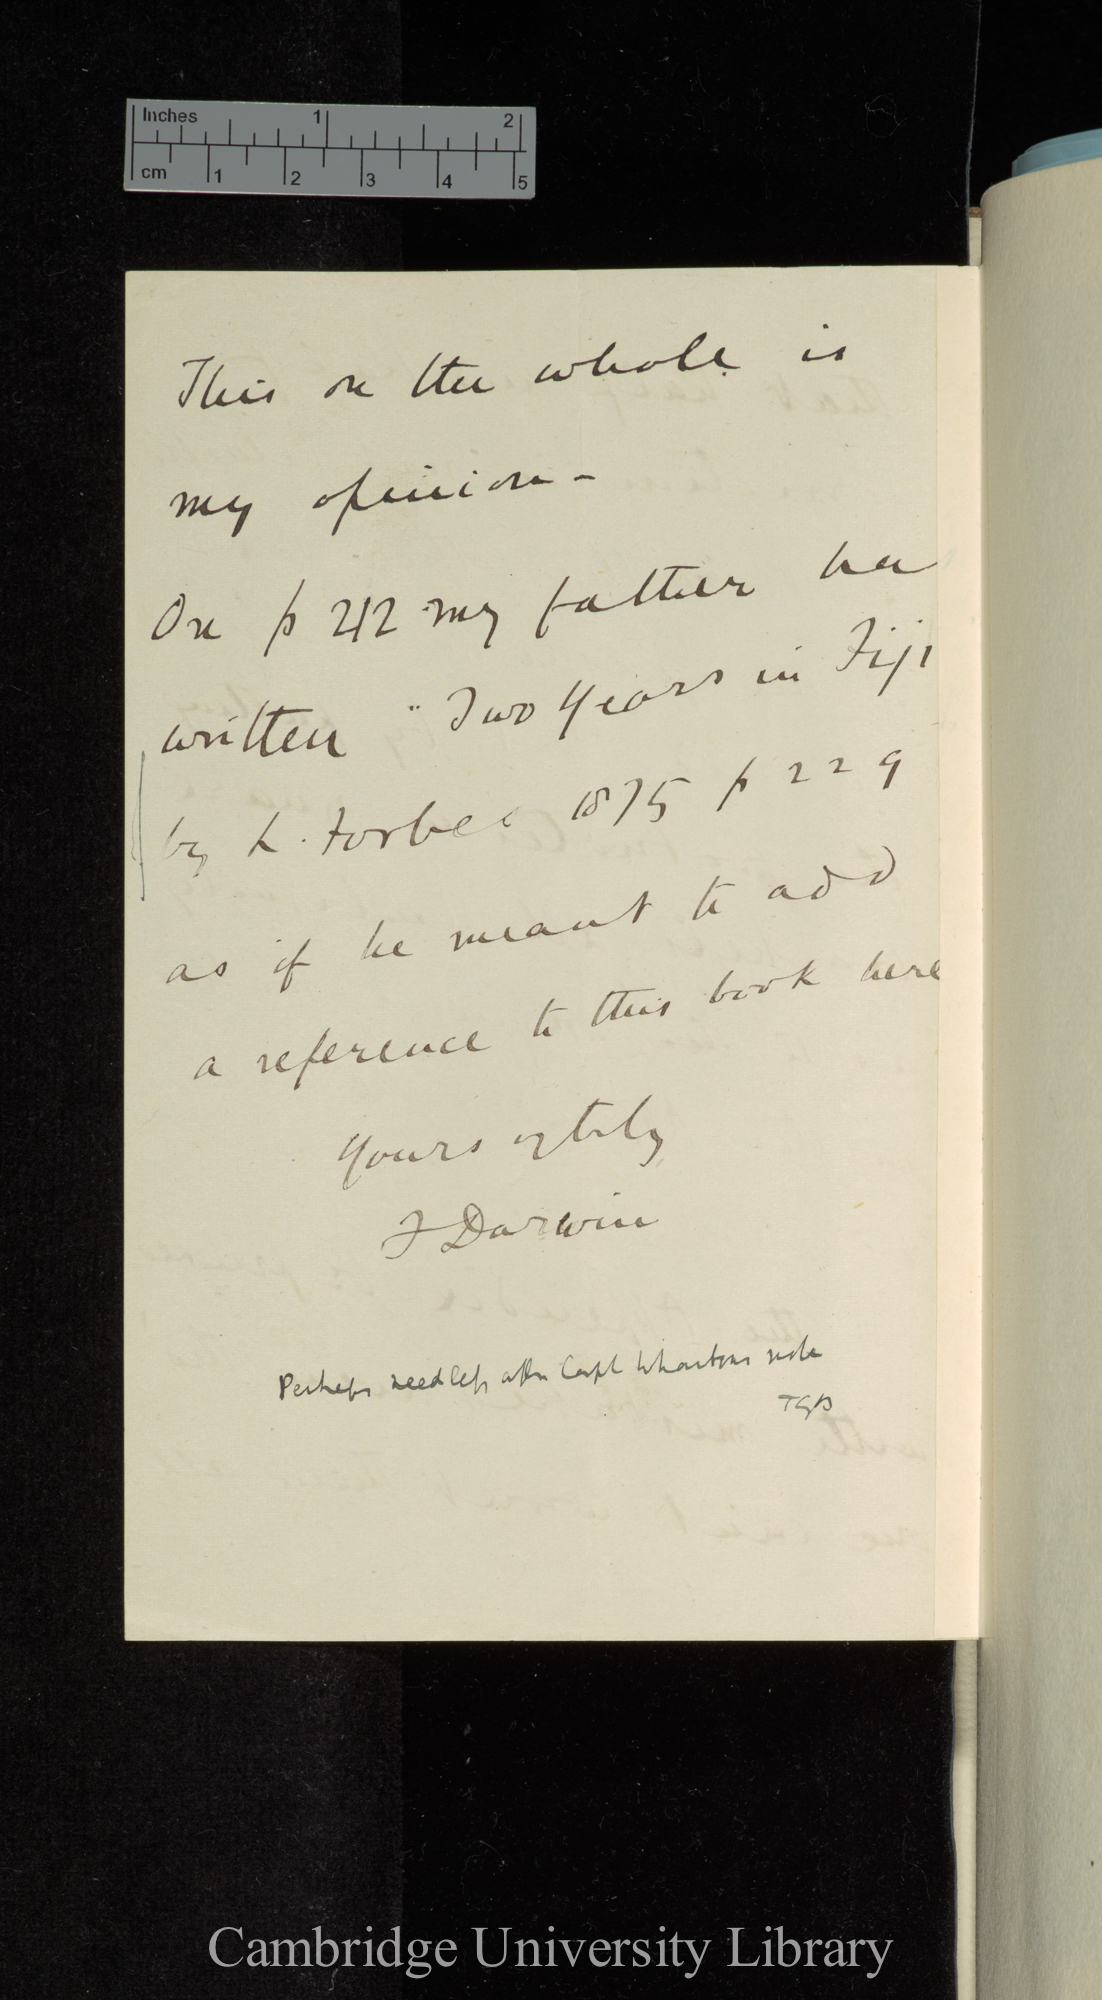 Inches 1 2
cm 1 2 3 4 5
This on the whole is
my opinion -
On p 212 my father ha
written "Two Years in Fiji
by L. Forbes 1875 p 229
as if he meant to add
a reference to this book here
Yours vy truly
F Darwin
Perhaps needless after Capt Whartons note
TGB
Cambridge University Library